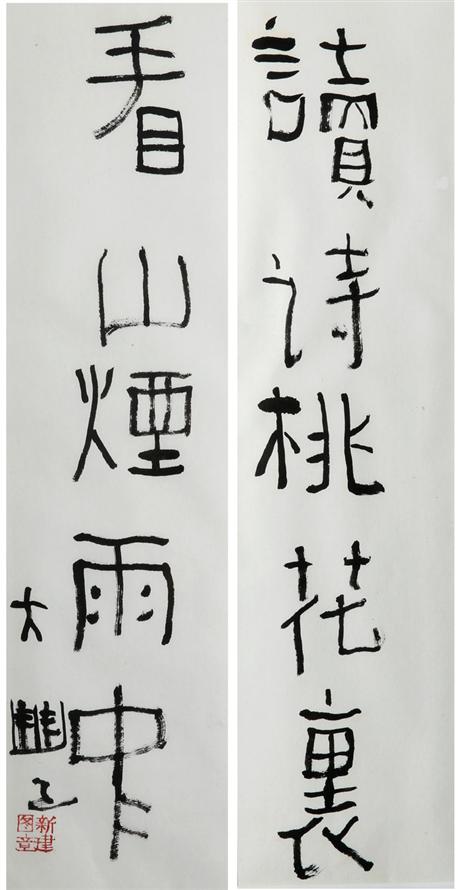 讀诗桃花裏
看山煙雨中
大
新建图章